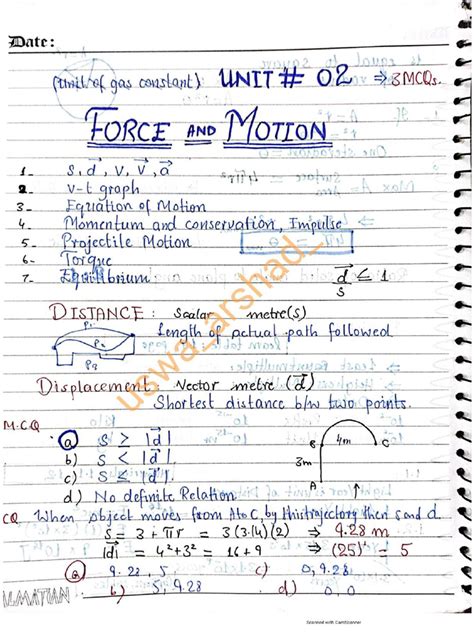 Date:
(Unit of gas constant) UNIT # 02 ⇒ 3 MCQs.
FORCE AND MOTION
1- s, d⃗, v, v⃗, a⃗
2- v-t graph
3- Equation of Motion
4- Momentum and conservation, Impulse
5- Projectile Motion
6- Torque
7- Equilibrium d⃗/s ≤ 1
DISTANCE : Scalar metre(s)
Length of actual path followed
P1
P2
Displacement Vector metre (d⃗)
Shortest distance b/w two points.
M.C.Q
a) S ≥ |d⃗|.
b) S ≤ |d⃗|.
c) S < |d⃗|.
d) No definite Relation.
B 4m C
3m
A
CQ When object moves from A to C, by this trajectory then s and d.
S = 3 + πr = 3(3.14)(2) ⇒ 9.28 m
|d| = 4² + 3² = 16 + 9 ⇒ (25)² = 5
a) 9.28, 5 c) 0, 9.28
b) 5, 9.28 d) 0, 0
ILMATIAN
uswa_arshad_
Scanned with CamScanner